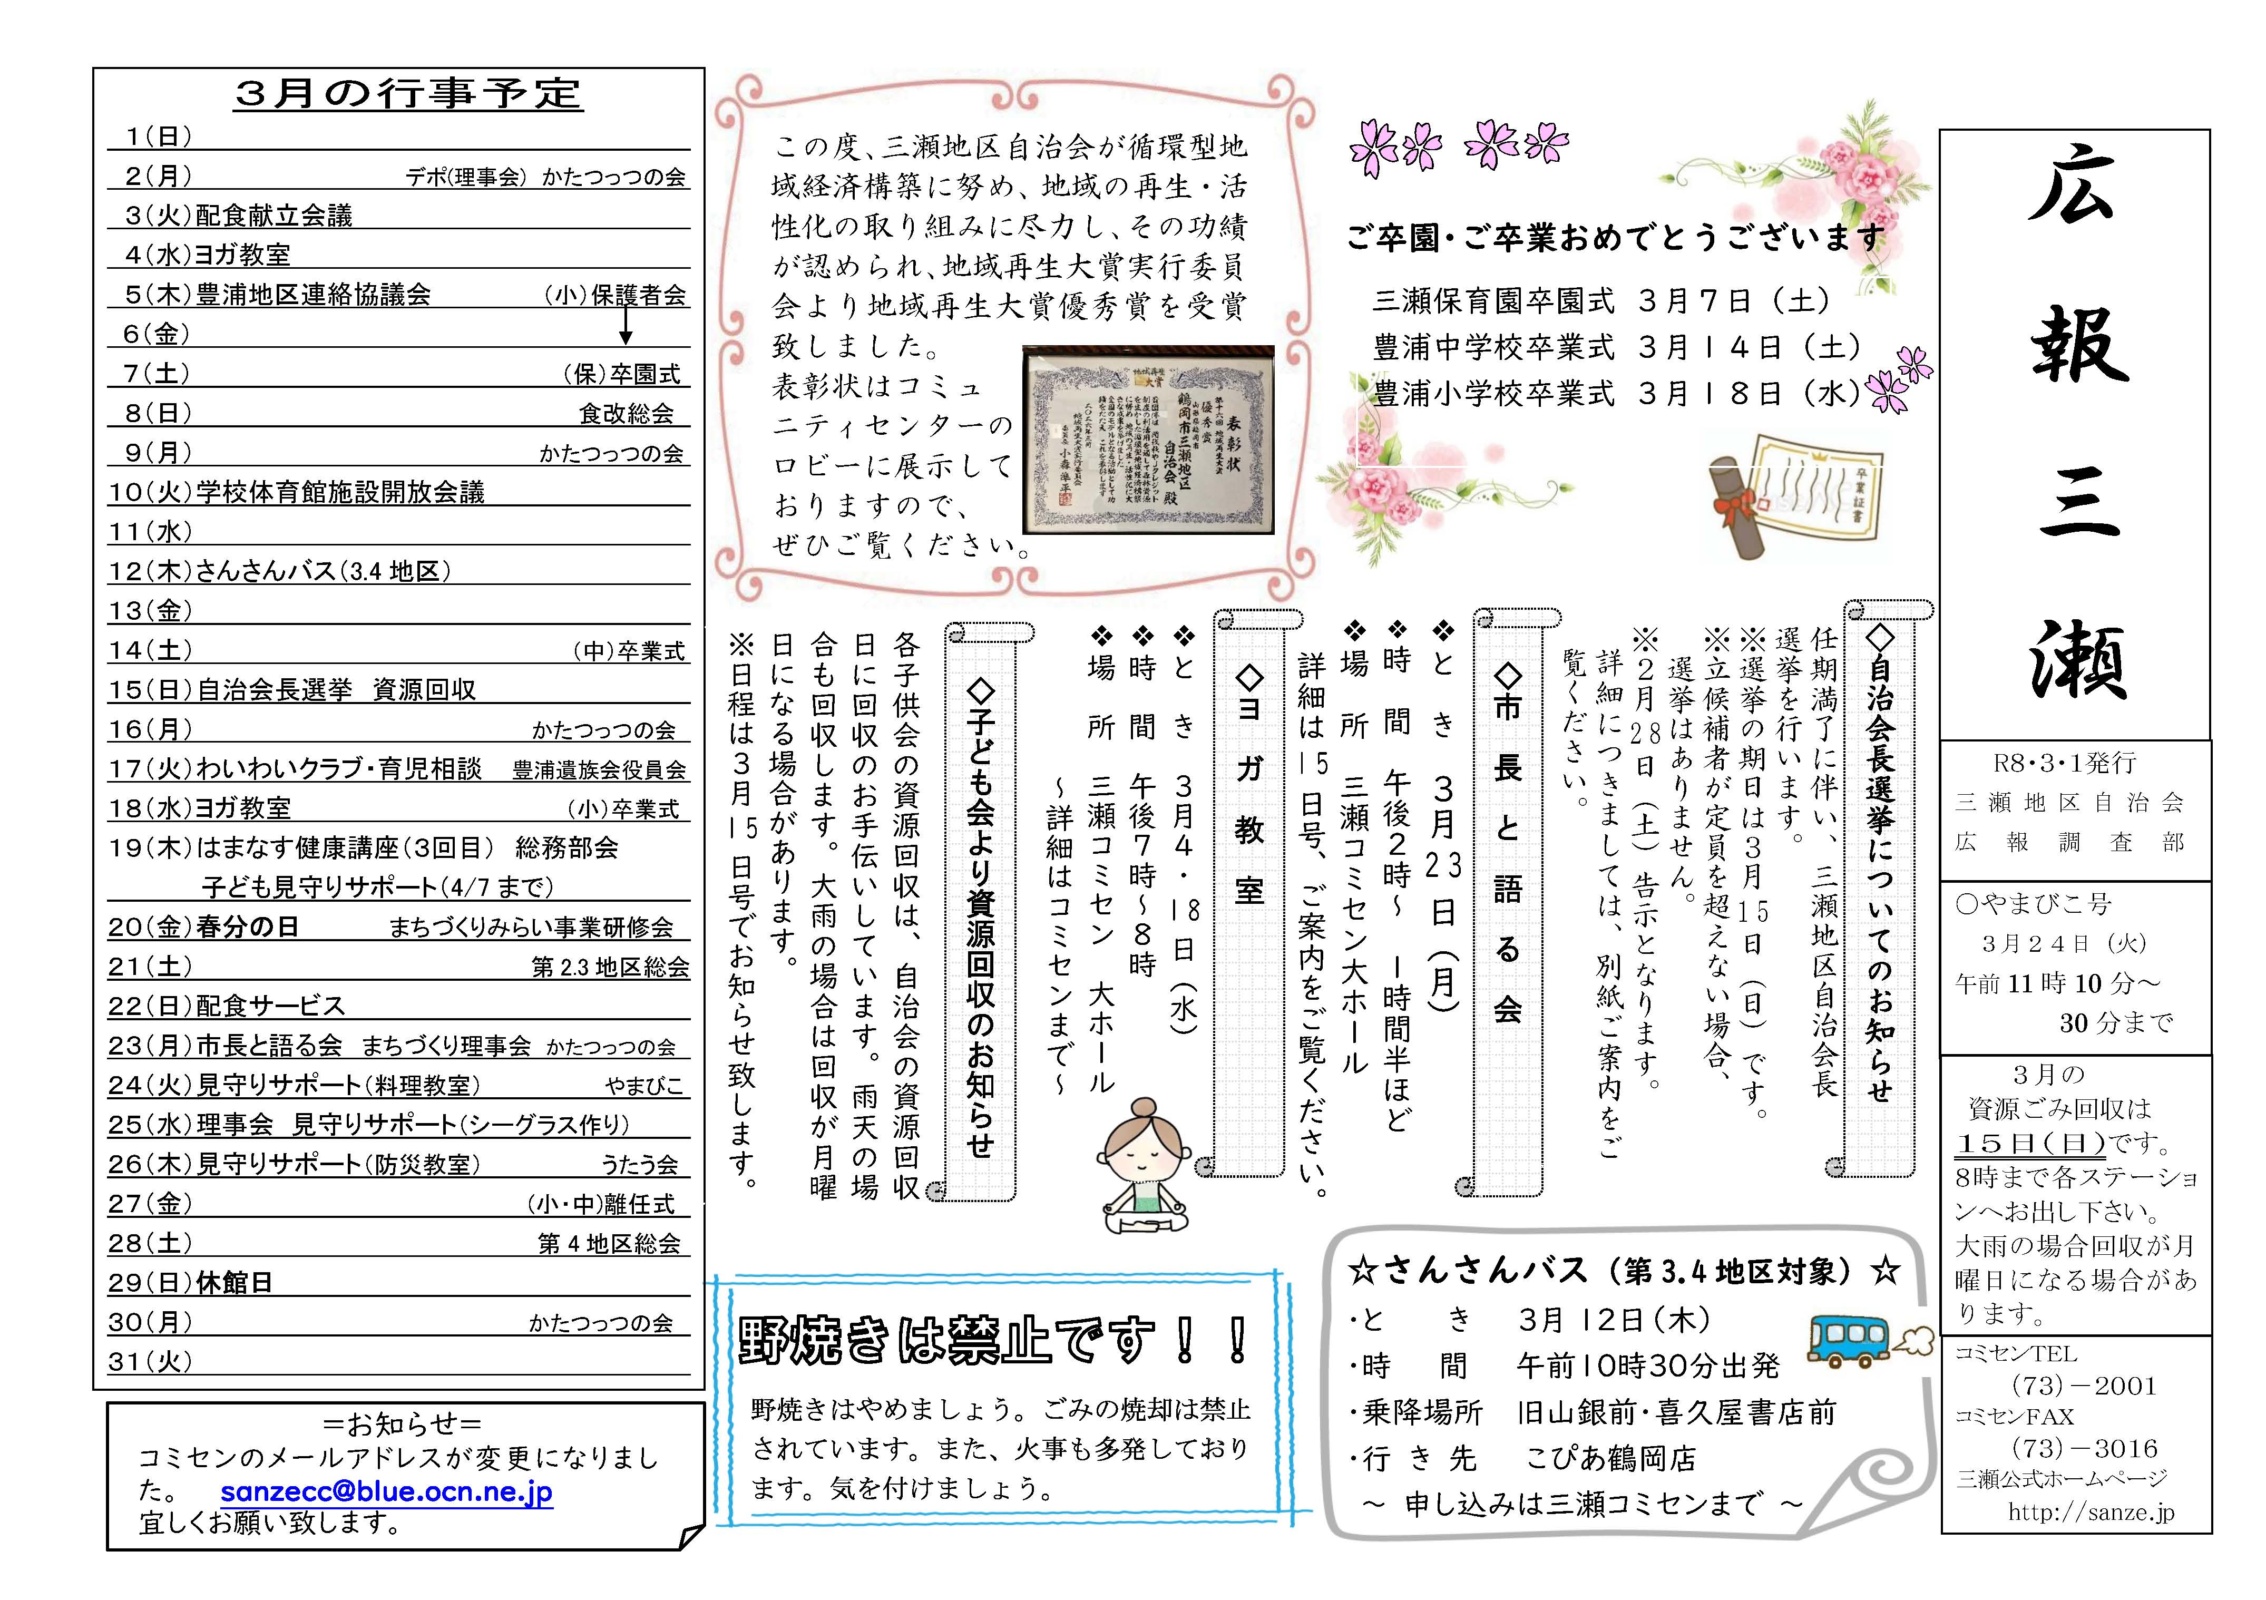 広報三瀬
R8・3・1発行
三瀬地区自治会
広報調査部
〇やまびこ号
3月24日（火）
午前11時10分～
30分まで
3月の
資源ごみ回収は
15日(日)です。
8時まで各ステーショ
ンへお出し下さい。
大雨の場合回収が月
曜日になる場合があ
ります。
コミセンTEL
(73)－2001
コミセンFAX
(73)－3016
三瀬公式ホームページ
http://sanze.jp
ご卒園・ご卒業おめでとうございます
三瀬保育園卒園式 3月7日（土）
豊浦中学校卒業式 3月14日（土）
豊浦小学校卒業式 3月18日（水）
卒業証書
この度、三瀬地区自治会が循環型地
域経済構築に努め、地域の再生・活
性化の取り組みに尽力し、その功績
が認められ、地域再生大賞実行委員
会より地域再生大賞優秀賞を受賞
致しました。
表彰状はコミュ
ニティセンターの
ロビーに展示して
おりますので、
ぜひご覧ください。
地域再生大賞
表彰状
第十六回 地域再生大賞
優秀賞
山形県鶴岡市
鶴岡市三瀬地区
自治会 殿
◇自治会長選挙についてのお知らせ
任期満了に伴い、三瀬地区自治会長
選挙を行います。
※選挙の期日は3月15日（日）です。
※立候補者が定員を超えない場合、
選挙はありません。
※2月28日（土）告示となります。
詳細につきましては、別紙ご案内をご
覧ください。
◇市長と語る会
❖とき 3月23日（月）
❖時間 午後2時～ 1時間半ほど
❖場所 三瀬コミセン大ホール
詳細は15日号、ご案内をご覧ください。
◇ヨガ教室
❖とき 3月4・18日（水）
❖時間 午後7時～8時
❖場所 三瀬コミセン 大ホール
～詳細はコミセンまで～
◇子ども会より資源回収のお知らせ
各子供会の資源回収は、自治会の資源回収
日に回収のお手伝いしています。雨天の場
合も回収します。大雨の場合は回収が月曜
日になる場合があります。
※日程は3月15日号でお知らせ致します。
☆さんさんバス（第3.4地区対象）☆
・とき 3月12日(木)
・時間 午前10時30分出発
・乗降場所 旧山銀前・喜久屋書店前
・行き先 こぴあ鶴岡店
～ 申し込みは三瀬コミセンまで ～
野焼きは禁止です！！
野焼きはやめましょう。ごみの焼却は禁止
されています。また、火事も多発しており
ます。気を付けましょう。
3月の行事予定
1(日)
2(月) デポ(理事会) かたつっつの会
3(火)配食献立会議
4(水)ヨガ教室
5(木)豊浦地区連絡協議会 (小)保護者会
6(金) ↓
7(土) (保)卒園式
8(日) 食改総会
9(月) かたつっつの会
10(火)学校体育館施設開放会議
11(水)
12(木)さんさんバス(3.4地区)
13(金)
14(土) (中)卒業式
15(日)自治会長選挙 資源回収
16(月) かたつっつの会
17(火)わいわいクラブ・育児相談 豊浦遺族会役員会
18(水)ヨガ教室 (小)卒業式
19(木)はまなす健康講座(3回目) 総務部会
子ども見守りサポート(4/7まで)
20(金)春分の日 まちづくりみらい事業研修会
21(土) 第2.3地区総会
22(日)配食サービス
23(月)市長と語る会 まちづくり理事会 かたつっつの会
24(火)見守りサポート(料理教室) やまびこ
25(水)理事会 見守りサポート(シーグラス作り)
26(木)見守りサポート(防災教室) うたう会
27(金) (小・中)離任式
28(土) 第4地区総会
29(日)休館日
30(月) かたつっつの会
31(火)
＝お知らせ＝
コミセンのメールアドレスが変更になりまし
た。 sanzecc@blue.ocn.ne.jp
宜しくお願い致します。